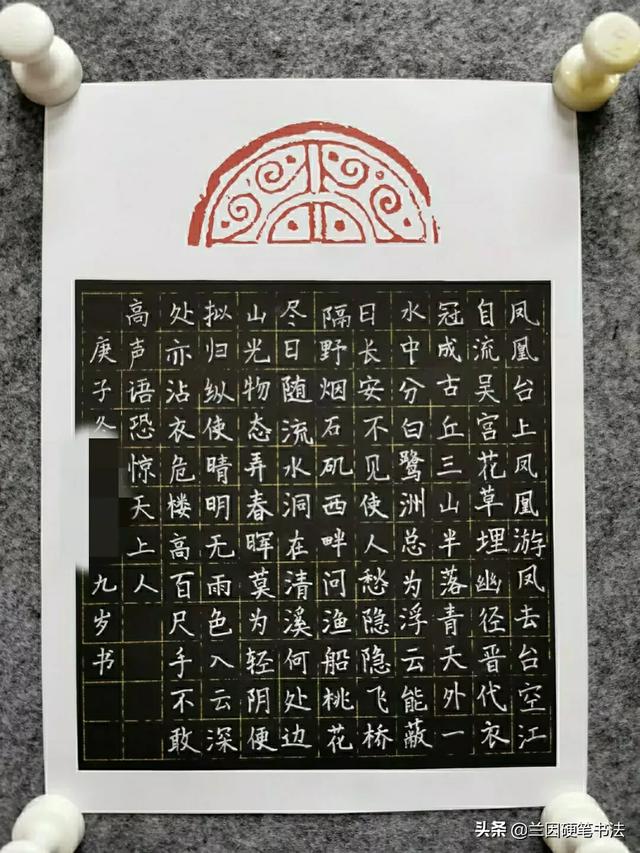 凤凰台上凤凰游凤去台空江
自流吴宫花草埋幽径晋代衣
冠成古丘三山半落青天外一
水中分白鹭洲总为浮云能蔽
日长安不见使人愁隐隐飞桥
隔野烟石矶西畔问渔船桃花
尽日随流水洞在清溪何处边
山光物态弄春晖莫为轻阴便
拟归纵使晴明无雨色入云深
处亦沾衣危楼高百尺手不敢
高声语恐惊天上人
庚子 九岁书
头条 @兰因硬笔书法